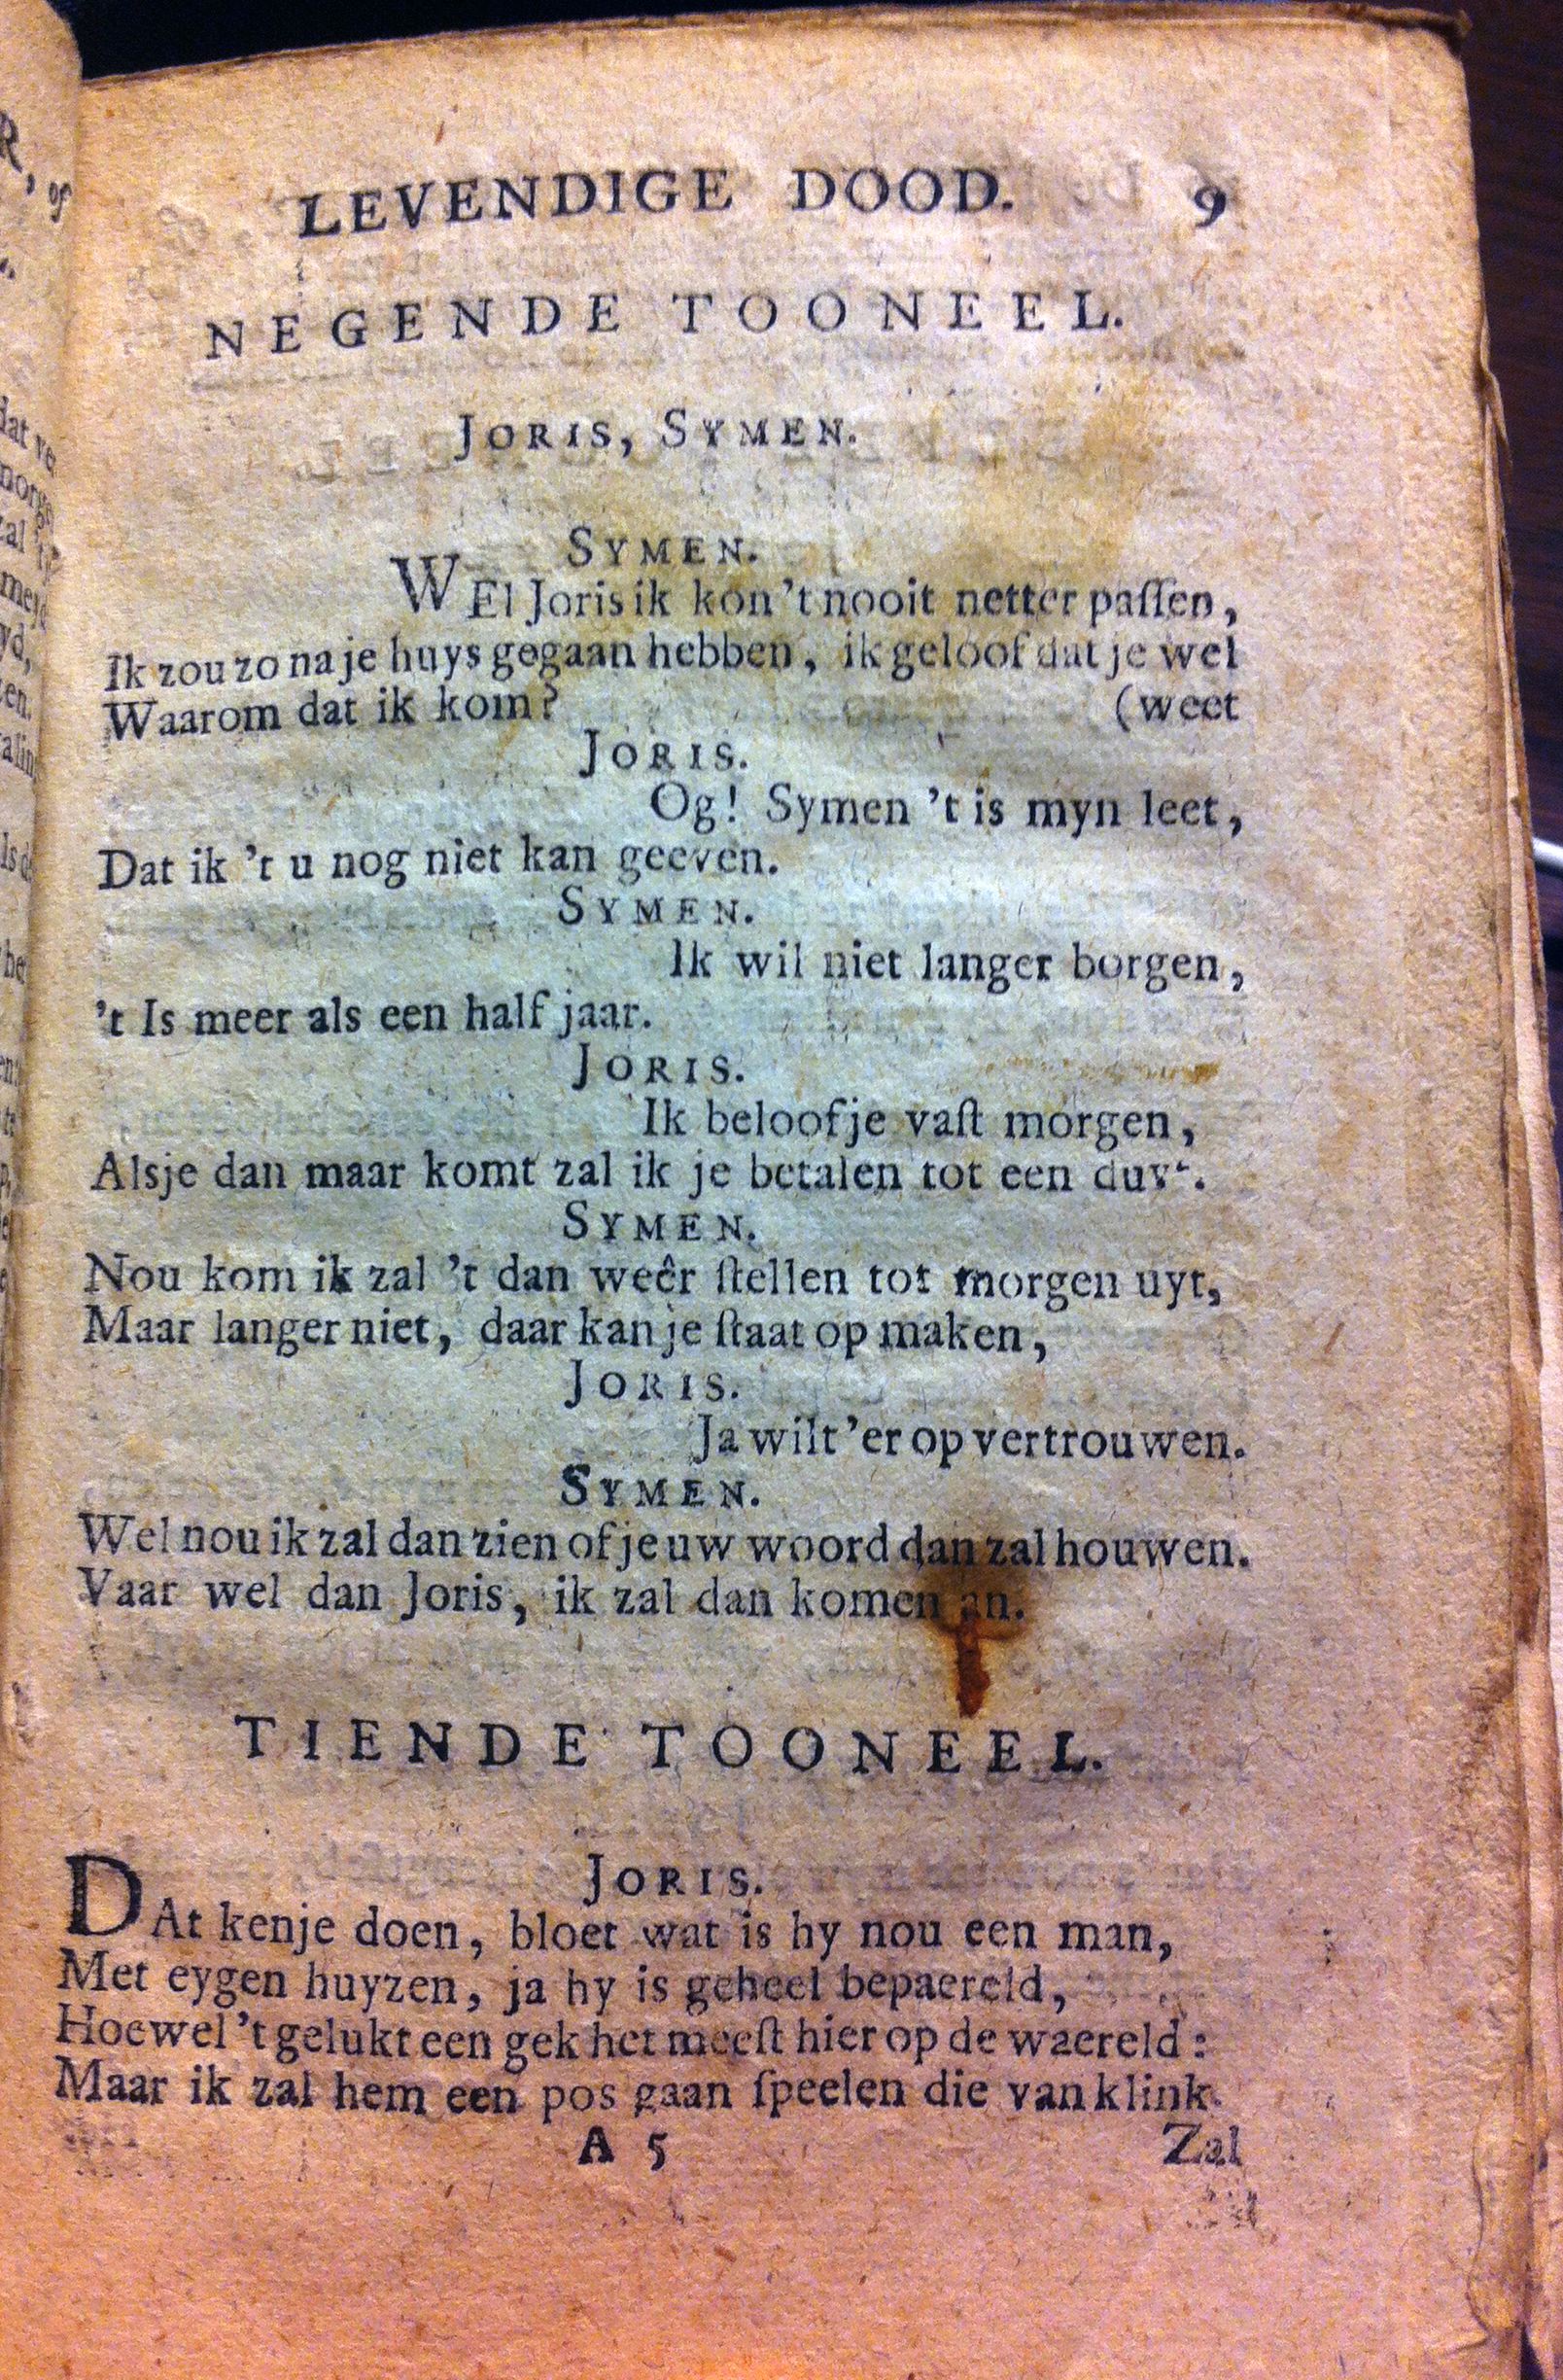 LEVENDIGE DOOD. 9
NEGENDE TOONEEL.
JORIS, SYMEN.
SYMEN.
WEl Joris ik kon 't nooit netter paſſen,
Ik zou zo na je huys gegaan hebben, ik geloof dat je wel
Waarom dat ik kom? (weet
JORIS.
Og! Symen 't is myn leet,
Dat ik 't u nog niet kan geeven.
SYMEN.
Ik wil niet langer borgen,
't Is meer als een half jaar.
JORIS.
Ik beloofje vaſt morgen,
Alsje dan maar komt zal ik je betalen tot een duyt.
SYMEN.
Nou kom ik zal 't dan weêr ſtellen tot morgen uyt,
Maar langer niet, daar kan je ſtaat op maken,
JORIS.
Ja wilt 'er op vertrouwen.
SYMEN.
Wel nou ik zal dan zien of je uw woord dan zal houwen.
Vaar wel dan Joris, ik zal dan komen an.
TIENDE TOONEEL.
JORIS.
DAt kenje doen, bloet wat is hy nou een man,
Met eygen huyzen, ja hy is geheel bepaereld,
Hoewel 't gelukt een gek het meeſt hier op de waereld:
Maar ik zal hem een pos gaan ſpeelen die van klink.
A 5 Zal